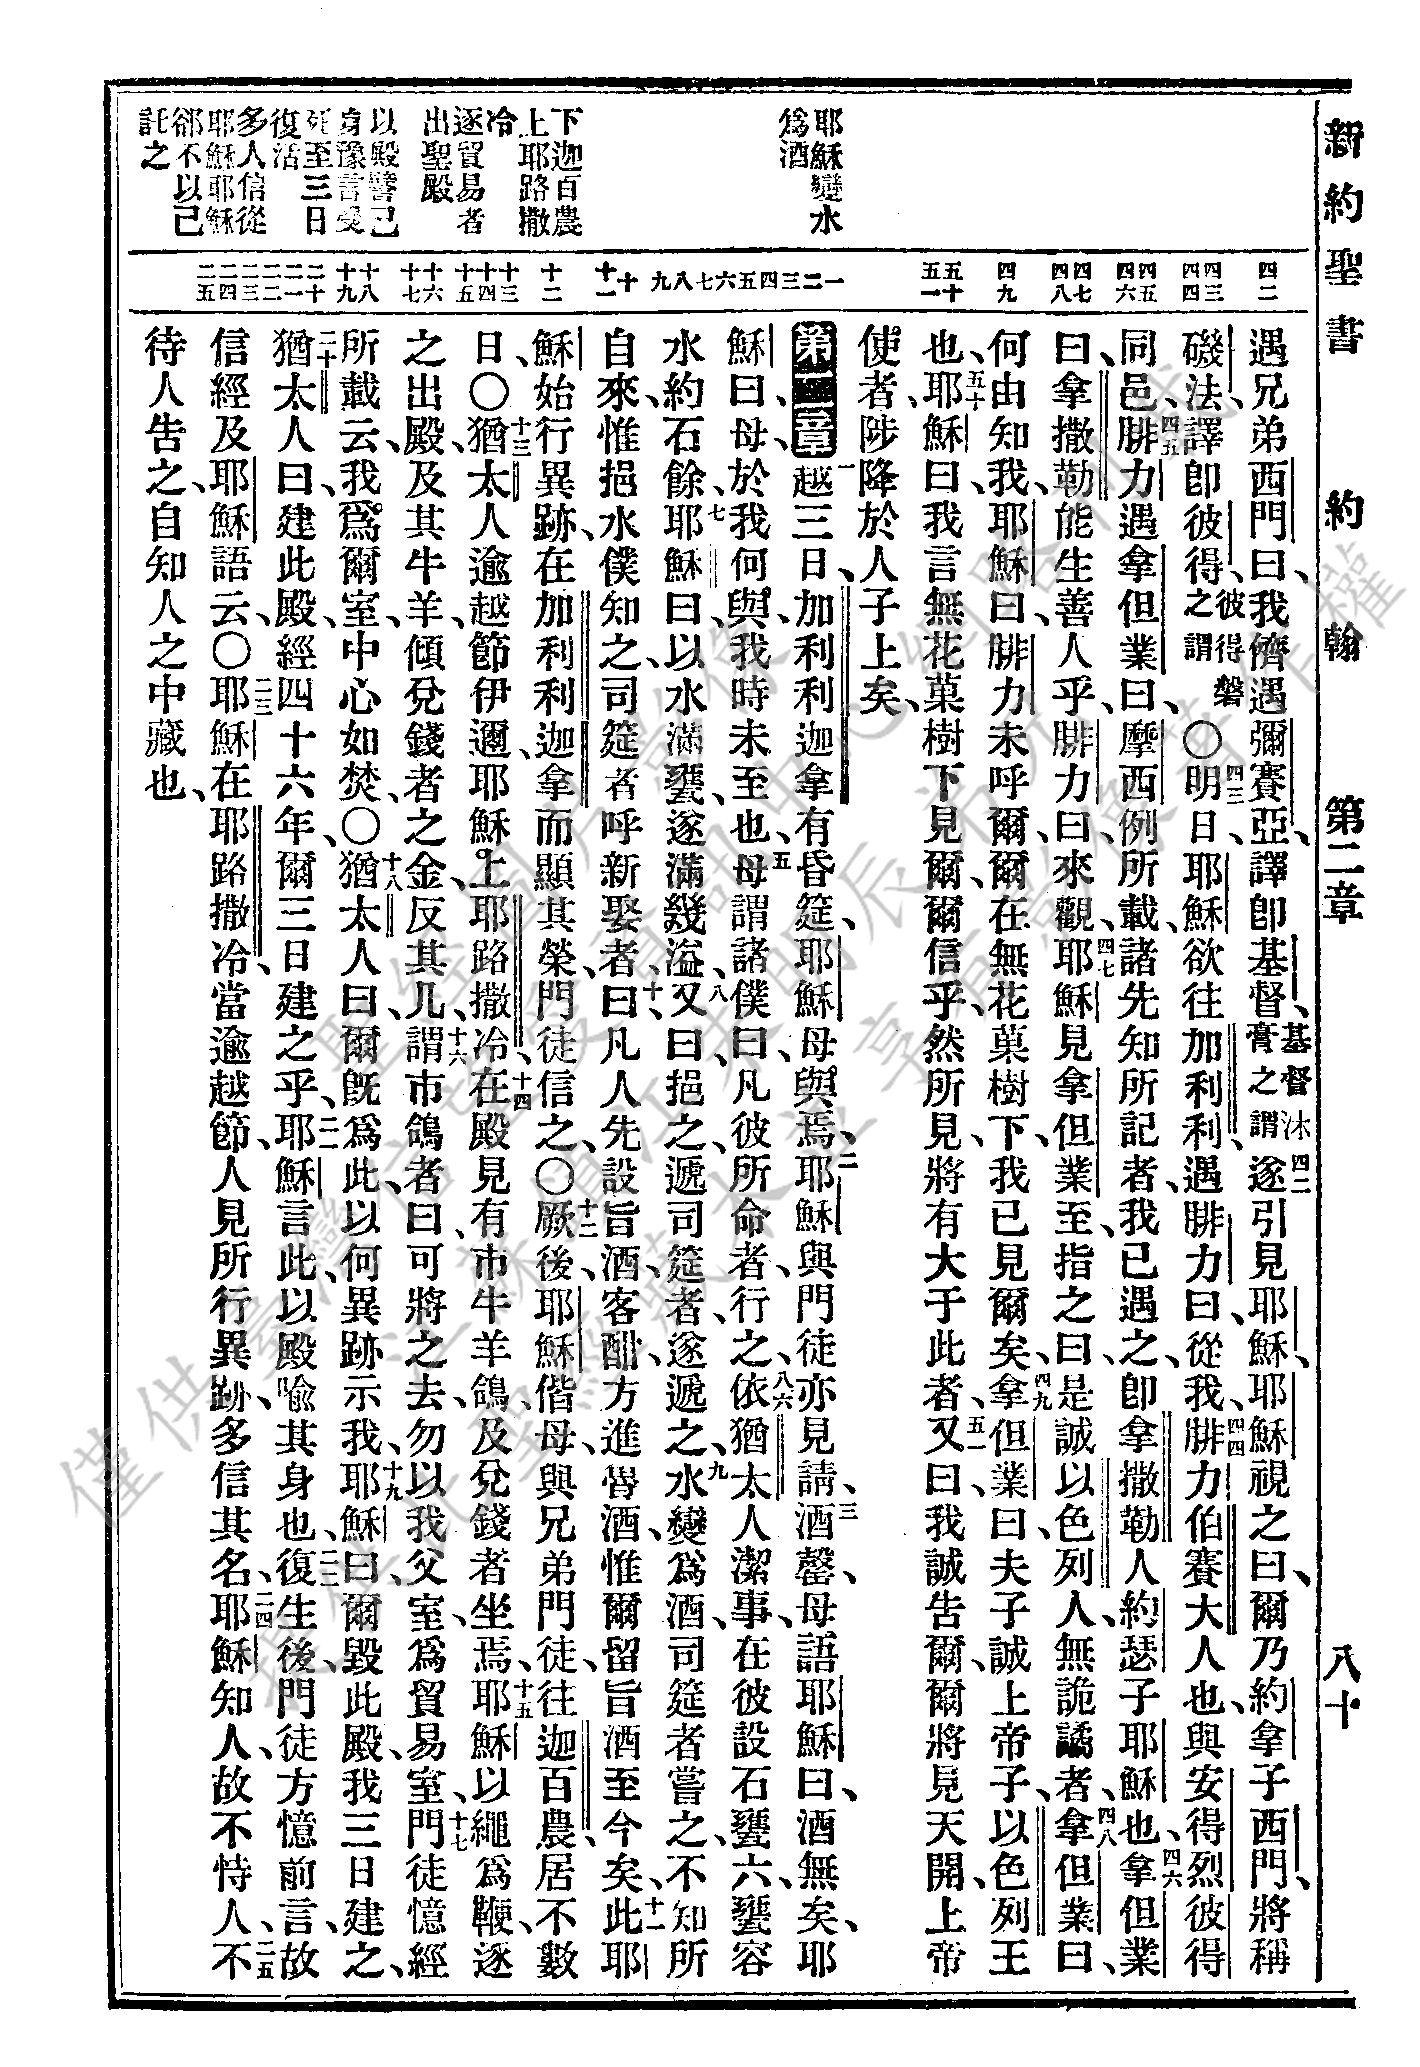 新約聖書 約翰 第二章 八十
耶穌變水
爲酒
下迦百農
上耶路撒
冷
逐貿易者
出聖殿
以殿譬己
身豫言受
死至三日
復活
多人信從
耶穌耶穌
卻不以己
託之
四二
四三
四四
四五
四六
四七
四八
四九
五十
五一
一二三四五六七八九
十
十一
十二
十三
十四
十五
十六
十七
十八
十九
二十
二一
二二
二三
二四
二五
遇兄弟西門曰、我儕遇彌賽亞、譯卽基督、基督沐膏之謂四二遂引見耶穌、耶穌視之曰、爾乃約拿子西門、將稱
磯法、譯卽彼得、彼得之謂磐〇四三明日、耶穌欲往加利利、遇腓力曰、從我、四四腓力伯賽大人也、與安得烈彼得
同邑、四五腓力遇拿但業曰、摩西例所載、諸先知所記者、我已遇之、卽拿撒勒人約瑟子耶穌也、四六拿但業
曰、拿撒勒能生善人乎、腓力曰、來觀、四七耶穌見拿但業至、指之曰、是誠以色列人、無詭譎者、四八拿但業曰、
何由知我、耶穌曰、腓力未呼爾、爾在無花菓樹下、我已見爾矣、四九拿但業曰、夫子誠上帝子、以色列王
也、五十耶穌曰、我言無花菓樹下見爾、爾信乎、然所見、將有大于此者、五一又曰、我誠告爾、爾將見天開、上帝
使者、陟降於人子上矣、
第二章一越三日、加利利迦拿有昏筵、耶穌母與焉、二耶穌與門徒亦見請、三酒罄、母語耶穌曰、酒無矣、耶
穌曰、母、於我何與、我時未至也、五母謂諸僕曰、凡彼所命者、行之、六依猶太人潔事、在彼設石甕六、甕容
水約石餘、七耶穌曰、以水滿甕、遂滿幾溢、八又曰、挹之、遞司筵者、遂遞之、九水變爲酒、司筵者嘗之、不知所
自來、惟挹水僕知之、司筵者呼新娶者、十曰、凡人先設旨酒、客酣、方進醨酒、惟爾留旨酒至今矣、十一此耶
穌始行異跡、在加利利迦拿而顯其榮、門徒信之、〇十二厥後、耶穌偕母、與兄弟門徒、往迦百農、居不數
日、〇十三猶太人逾越節伊邇、耶穌上耶路撒冷、十四在殿見有市牛羊鴿、及兌錢者坐焉、十五耶穌以繩爲鞭、逐
之出殿、及其牛羊、傾兌錢者之金、反其几、十六謂市鴿者曰、可將之去、勿以我父室、爲貿易室、十七門徒憶經
所載云、我爲爾室、中心如焚、〇十八猶太人曰、爾旣爲此、以何異跡示我、十九耶穌曰、爾毀此殿、我三日建之、
二十猶太人曰、建此殿、經四十六年、爾三日建之乎、二一耶穌言此、以殿喩其身也、二二復生後、門徒方憶前言、故
信經及耶穌語云、〇二三耶穌在耶路撒冷、當逾越節、人見所行異跡、多信其名、二四耶穌知人、故不恃人、二五不
待人告之、自知人之中藏也、